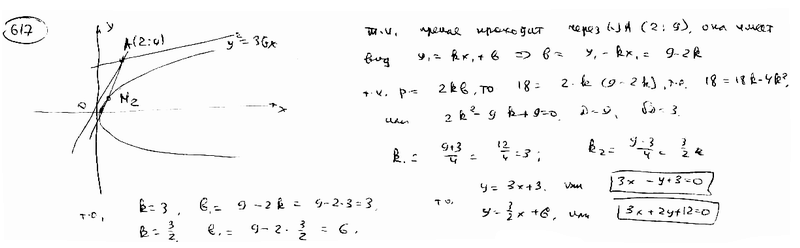 617
y
A(2;9)
y²=36x
M₂
0
x
т.к. прямая проходит через (·)A (2;9), она имеет
вид y₁ = kx₁ + b ⇒ b = y₁ - kx₁ = 9-2k
т.к. p = 2kb, то 18 = 2·k (9-2k), т.о. 18 = 18k-4k²,
или 2k² - 9k + 9 = 0, D=9, √D=3.
k₁ = (9+3)/4 = 12/4 = 3; k₂ = (9-3)/4 = 3/2
т.о., k=3, b₁ = 9-2k = 9-2·3=3.
k=3/2, b₁ = 9-2·3/2 = 6.
т.о. y = 3x+3, или 3x - y+3=0
y = 3/2 x + 6, или 3x + 2y+12=0